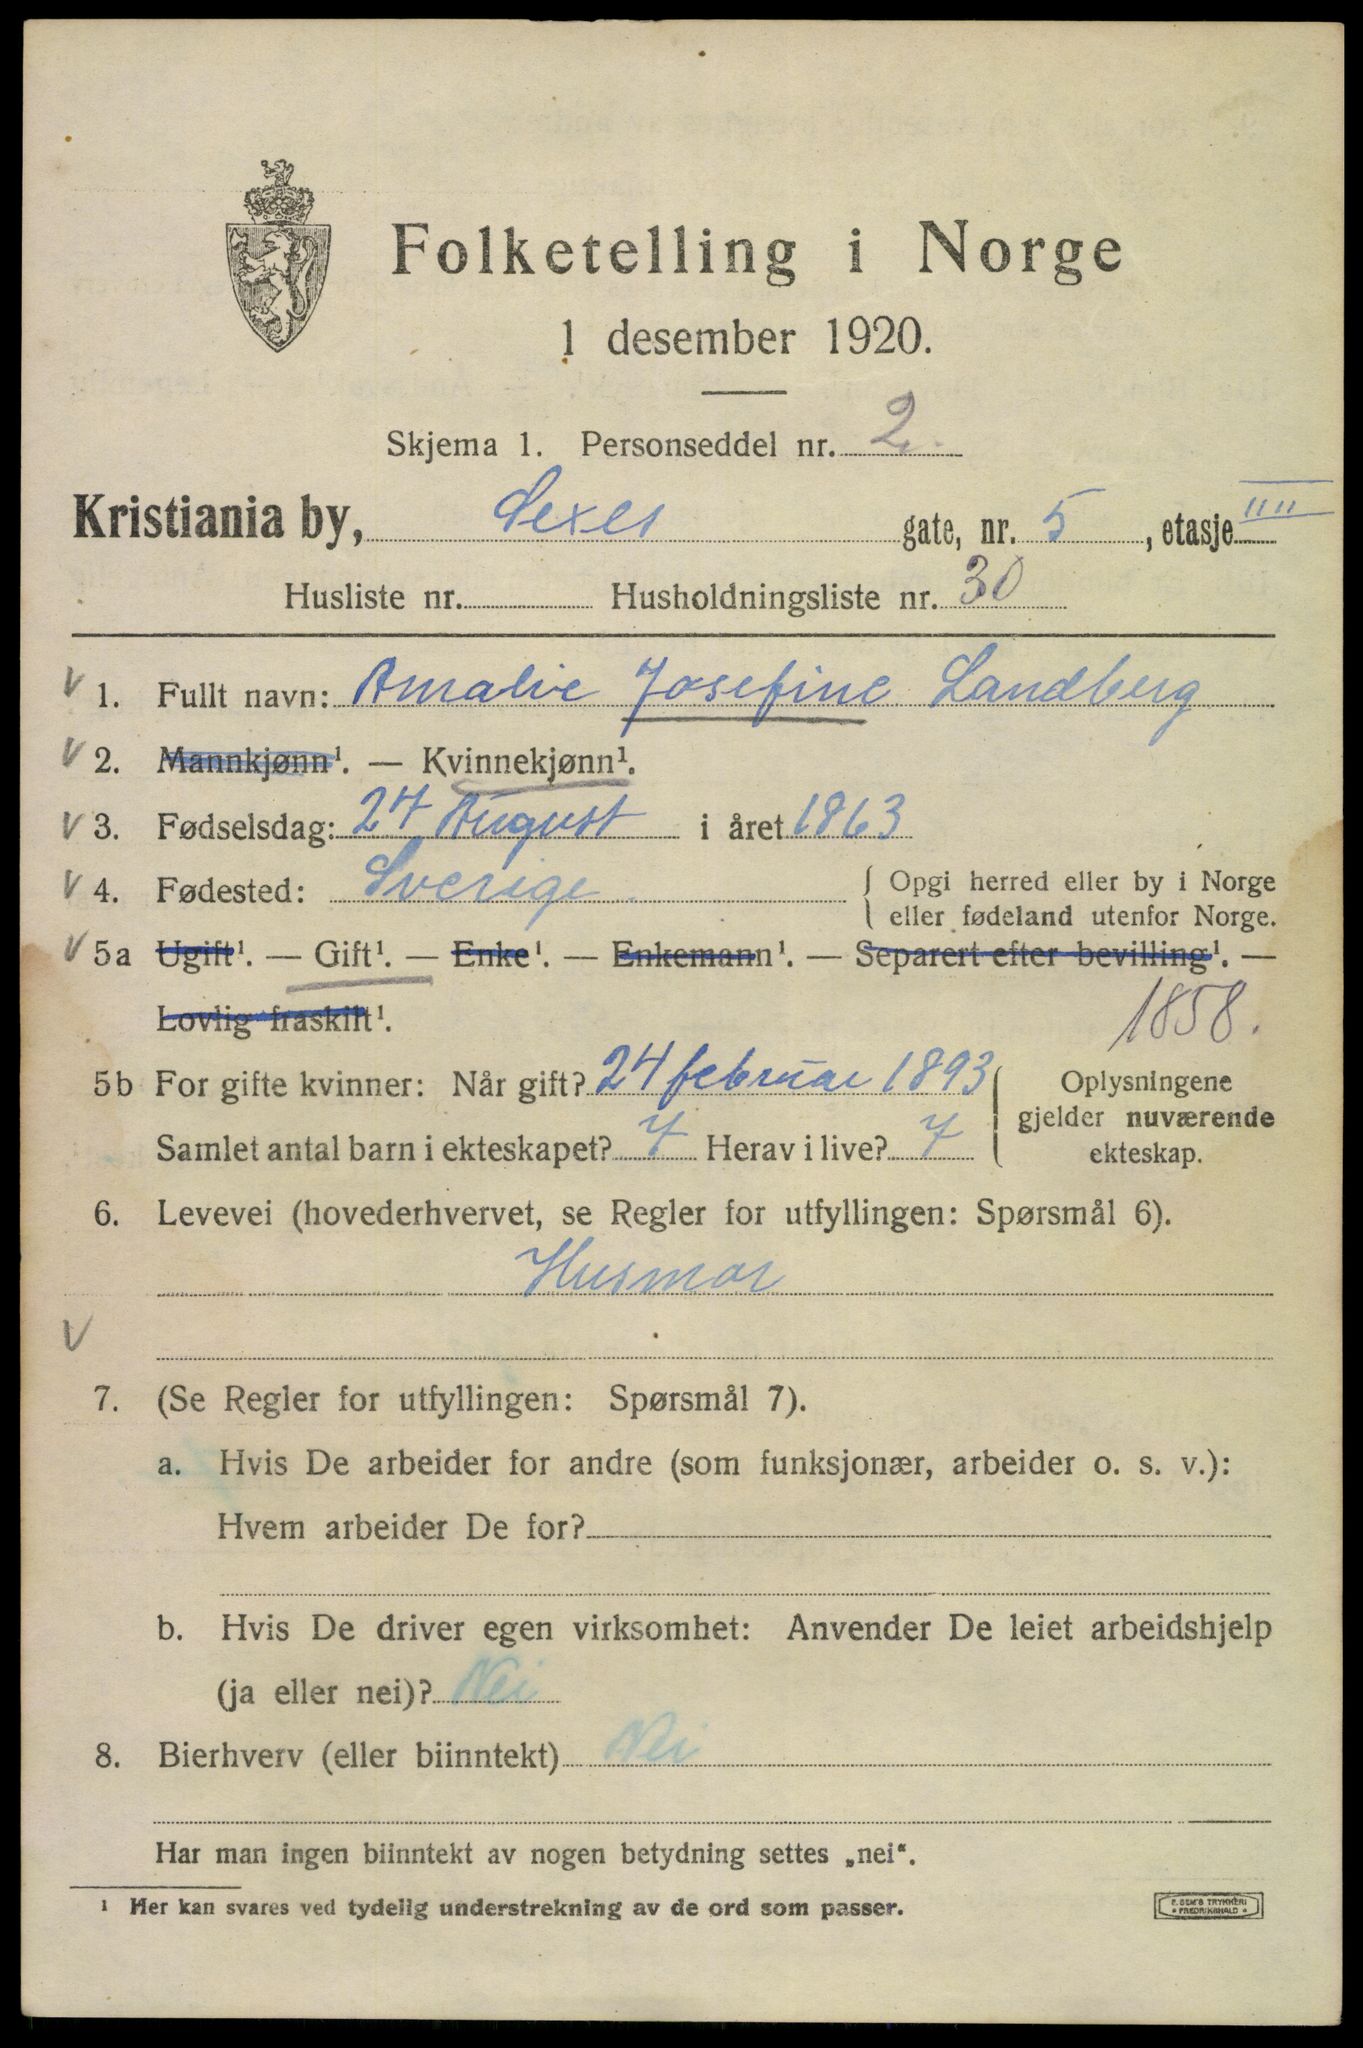 Folketelling i Norge
1 desember 1920.
Skjema 1. Personseddel nr. 2.
Kristiania by, Sexes gate, nr. 5, etasje IIII
Husliste nr. Husholdningsliste nr. 30
V 1. Fullt navn: Amalie Josefine Landberg
V 2. Mannkjønn¹. — Kvinnekjønn¹.
V 3. Fødselsdag: 27 August i året 1863
V 4. Fødested: Sverige. { Opgi herred eller by i Norge
eller fødeland utenfor Norge.
V 5a Ugift¹. — Gift¹. — Enke¹. — Enkemann¹. — Separert efter bevilling¹. —
Lovlig fraskilt¹. 1858.
5b For gifte kvinner: Når gift? 24 februar 1893
Samlet antal barn i ekteskapet? 7 Herav i live? 7
{ Oplysningene
gjelder nuværende
ekteskap.
6. Levevei (hovederhvervet, se Regler for utfyllingen: Spørsmål 6).
Husmor
V
7. (Se Regler for utfyllingen: Spørsmål 7).
a. Hvis De arbeider for andre (som funksjonær, arbeider o. s. v.):
Hvem arbeider De for?
b. Hvis De driver egen virksomhet: Anvender De leiet arbeidshjelp
(ja eller nei)? Nei
8. Bierhverv (eller biinntekt) Nei
Har man ingen biinntekt av nogen betydning settes „nei“.
¹ Her kan svares ved tydelig understrekning av de ord som passer.
E. SEM'S TRYKKERI
• FREDRIKSHALD •